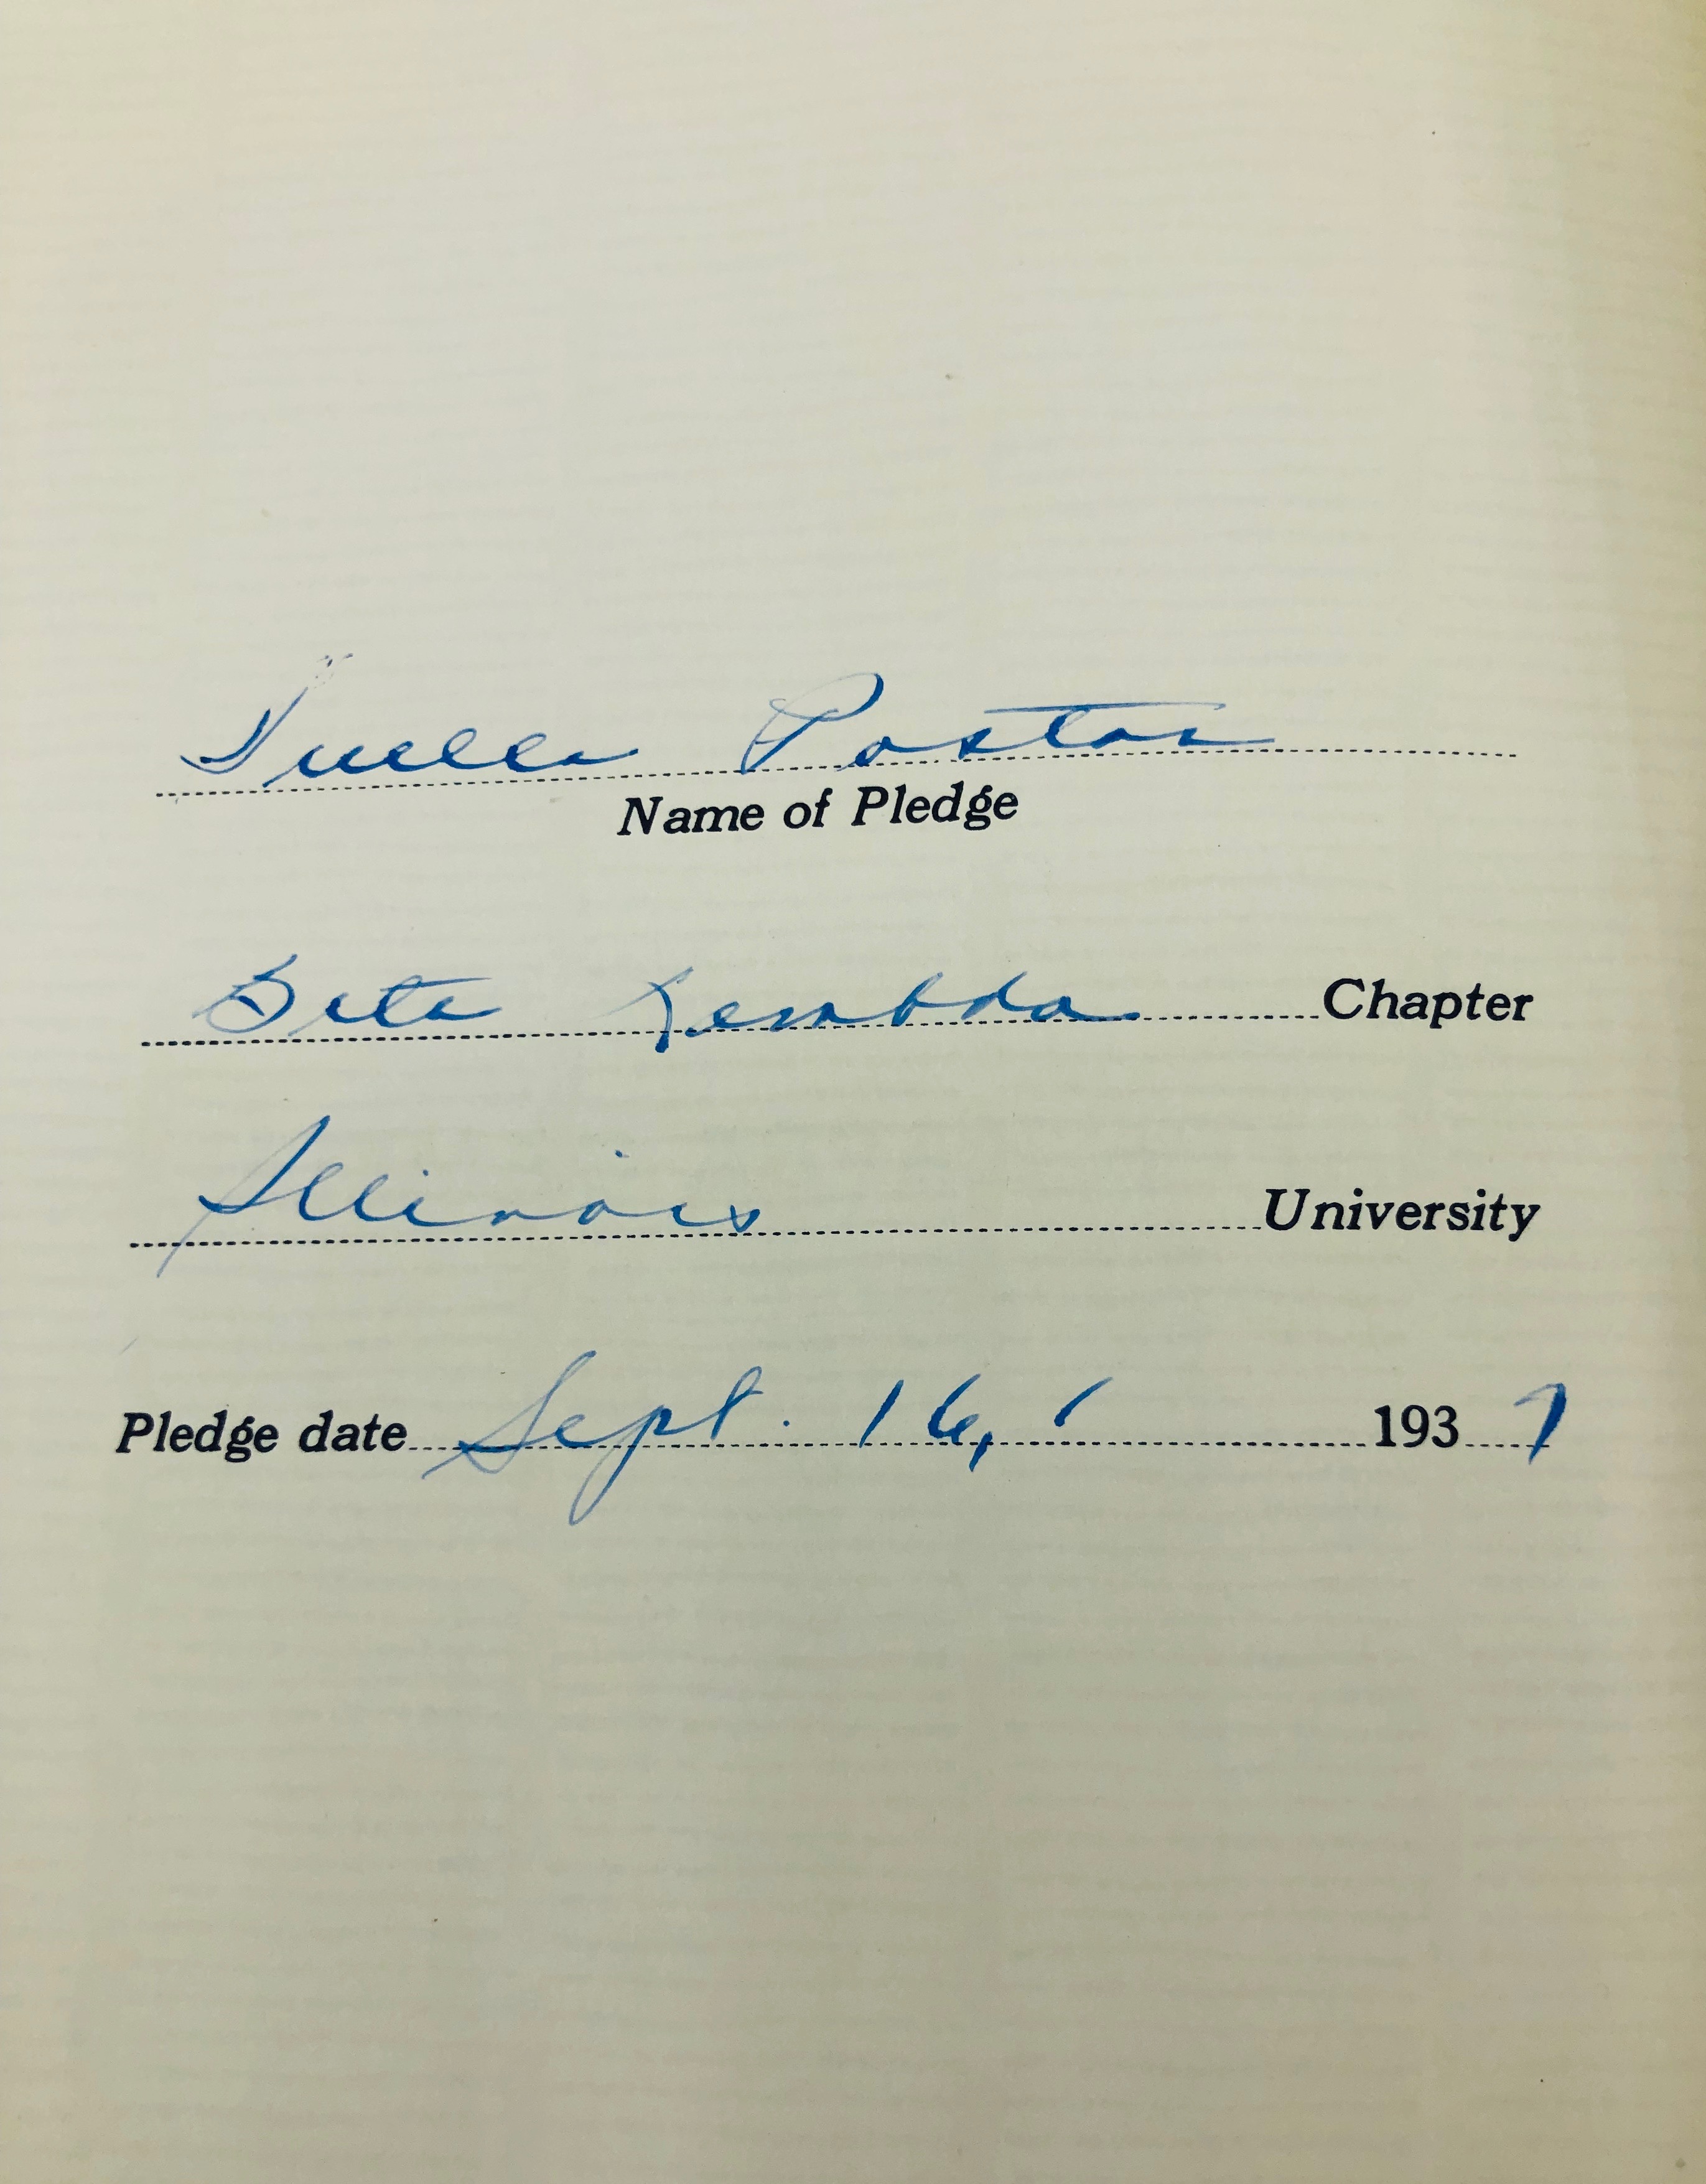 Name of Pledge
Beta Lambda Chapter
Illinois University
Pledge date Sept. 16, 1937